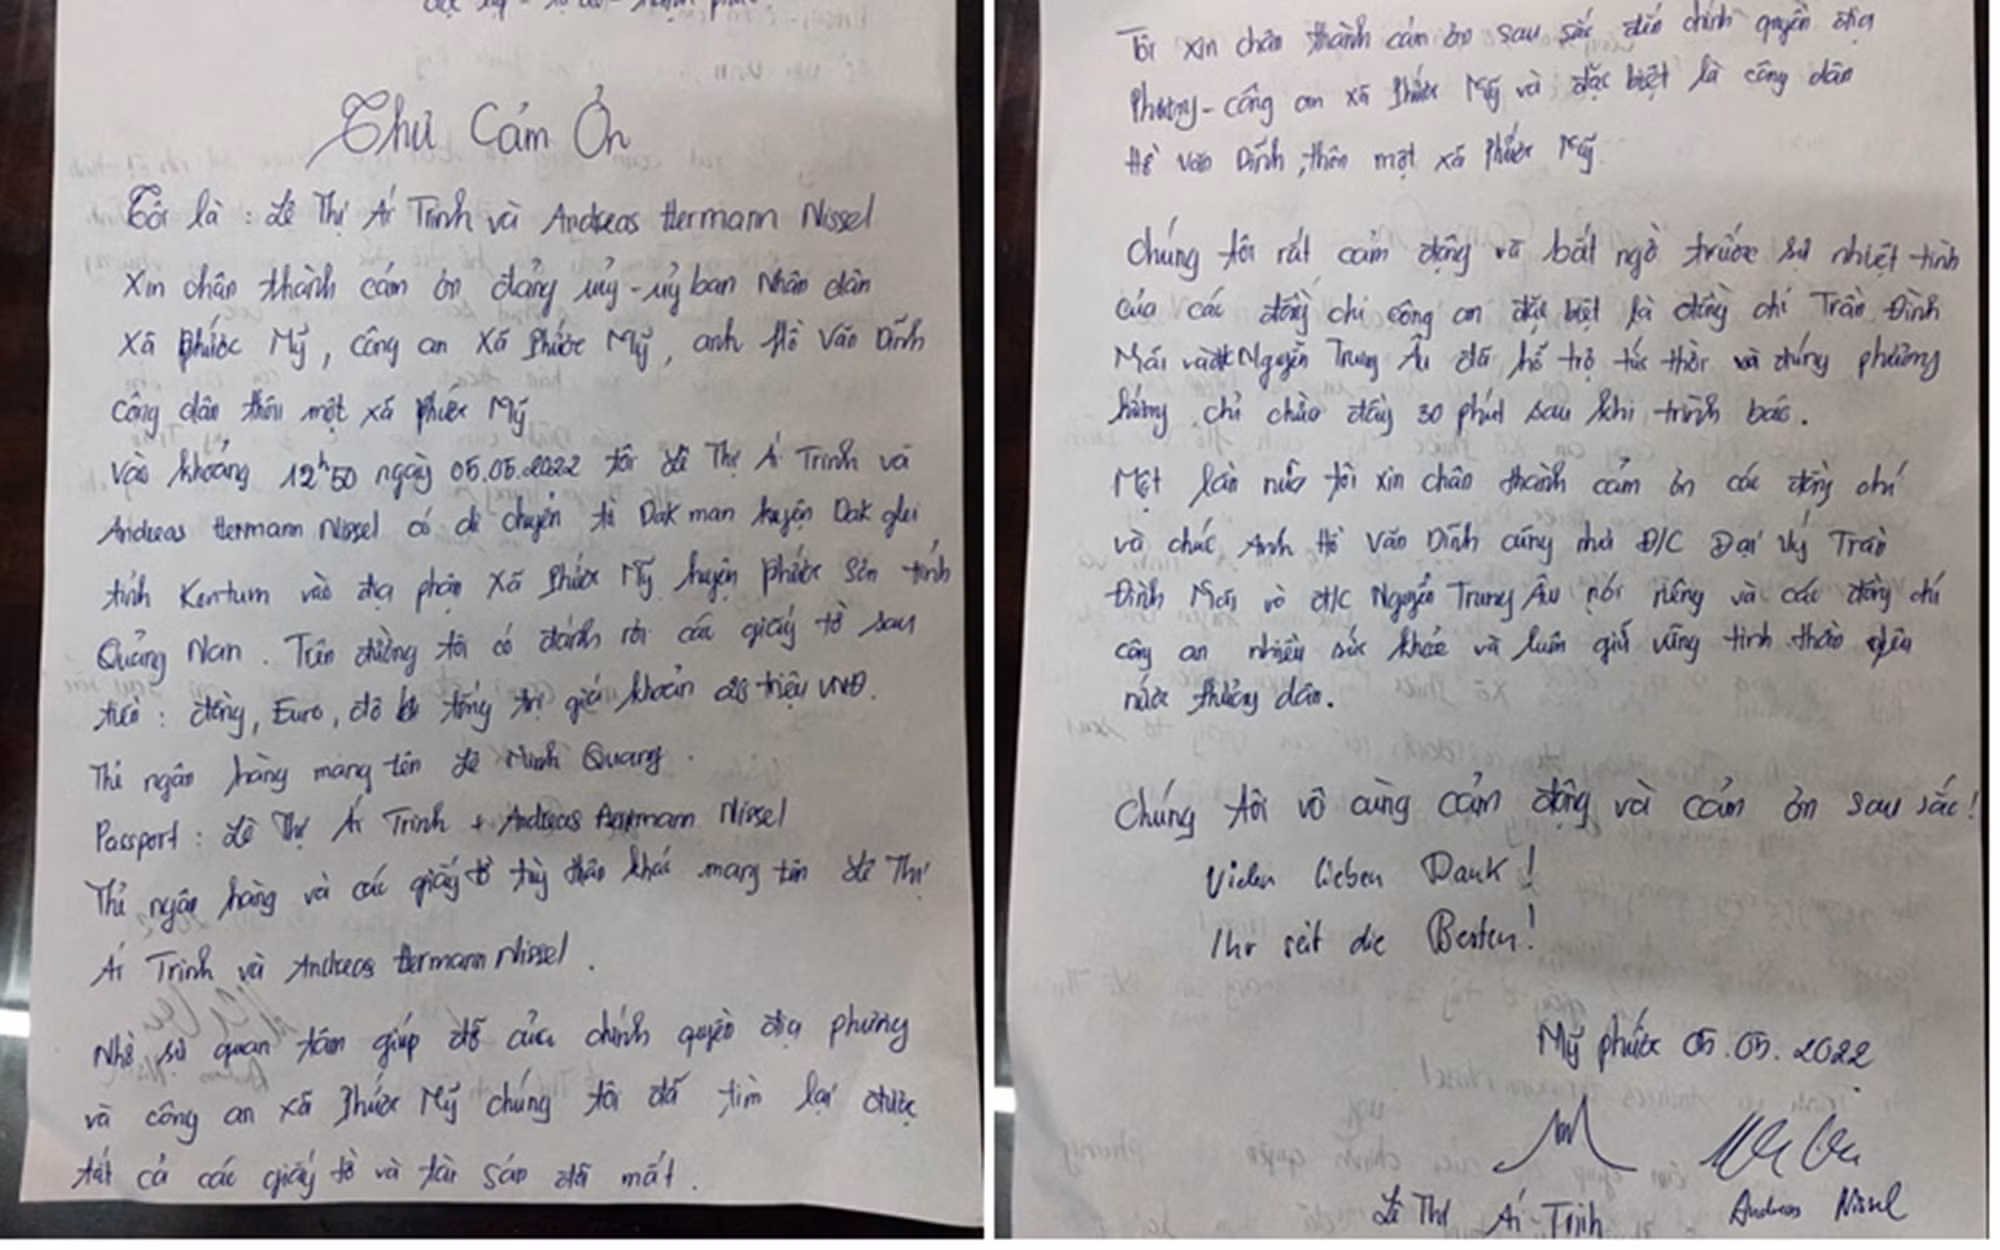 Thư Cảm Ơn
Tôi là : Lê Thị Ái Trinh và Andreas Hermann Nissel
Xin chân thành cám ơn đảng ủy - ủy ban Nhân dân
Xã Phước Mỹ, công an Xã Phước Mỹ, anh Hồ Văn Dĩnh
công dân thôn một xã Phước Mỹ
Vào khoảng 12h50 ngày 05.05.2022 tôi Lê Thị Ái Trinh và
Andreas Hermann Nissel có di chuyển từ Dak man huyện Dak glei
tỉnh Kontum vào địa phận Xã Phước Mỹ huyện Phước Sơn tỉnh
Quảng Nam. Trên đường tôi có đánh rơi các giấy tờ sau
tiền : đồng, Euro, đô tổng trị giá khoản triệu VNĐ.
Thẻ ngân hàng mang tên Lê Minh Quang.
Passport : Lê Thị Ái Trinh + Andreas Hermann Nissel
Thẻ ngân hàng và các giấy tờ tùy thân khác mang tên Lê Thị
Ái Trinh và Andreas Hermann Nissel.
Nhờ sự quan tâm giúp đỡ của chính quyền địa phương
và công an xã Phước Mỹ chúng tôi đã tìm lại được
tất cả các giấy tờ và tài sản đã mất.
Tôi xin chân thành cảm ơn sau sắc đến chính quyền địa
Phương - công an xã Phước Mỹ và đặc biệt là công dân
Hồ Văn Dĩnh, thôn một xã Phước Mỹ
Chúng tôi rất cảm động và bất ngờ trước sự nhiệt tình
của các đồng chí công an đặc biệt là đồng chí Trần Đình
Mái và đ/c Nguyễn Trung Âu đã hổ trợ tức thời và đúng phương
hướng chỉ chưa đầy 30 phút sau khi trình báo.
Một lần nữa tôi xin chân thành cảm ơn các đồng chí
và chúc Anh Hồ Văn Dĩnh cũng như Đ/C Đại úy Trần
Đình Mái và đ/c Nguyễn Trung Âu nói riêng và các đồng chí
công an nhiều sức khỏe và luôn giữ vững tinh thần yêu
nước thương dân.
Chúng tôi vô cùng cảm động và cảm ơn sau sắc!
Vielen lieben Dank!
Ihr seit die Besten!
Mỹ phước 05.05.2022
Lê Thị Ái Trinh Andreas Nissel